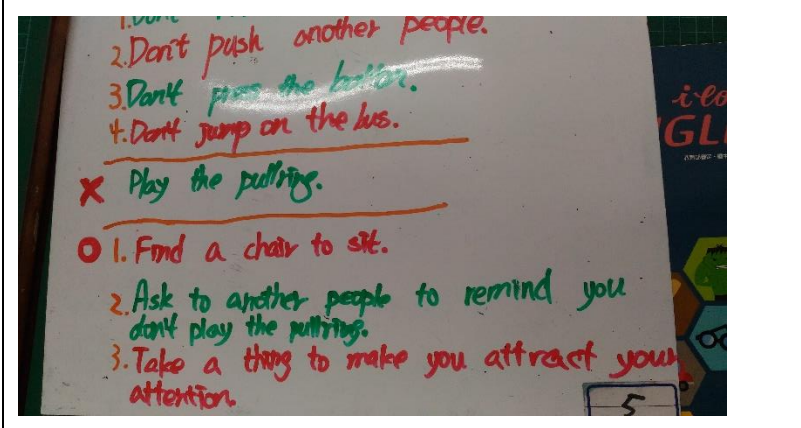 1.Don't
2.Don't push another people.
3.Don't press the botton.
4.Don't jump on the bus.
X Play the pullring.
O 1. Find a chair to sit.
2. Ask to another people to remind you
don't play the pullring.
3. Take a thing to make you attract your
attention.
5
i lo
GL